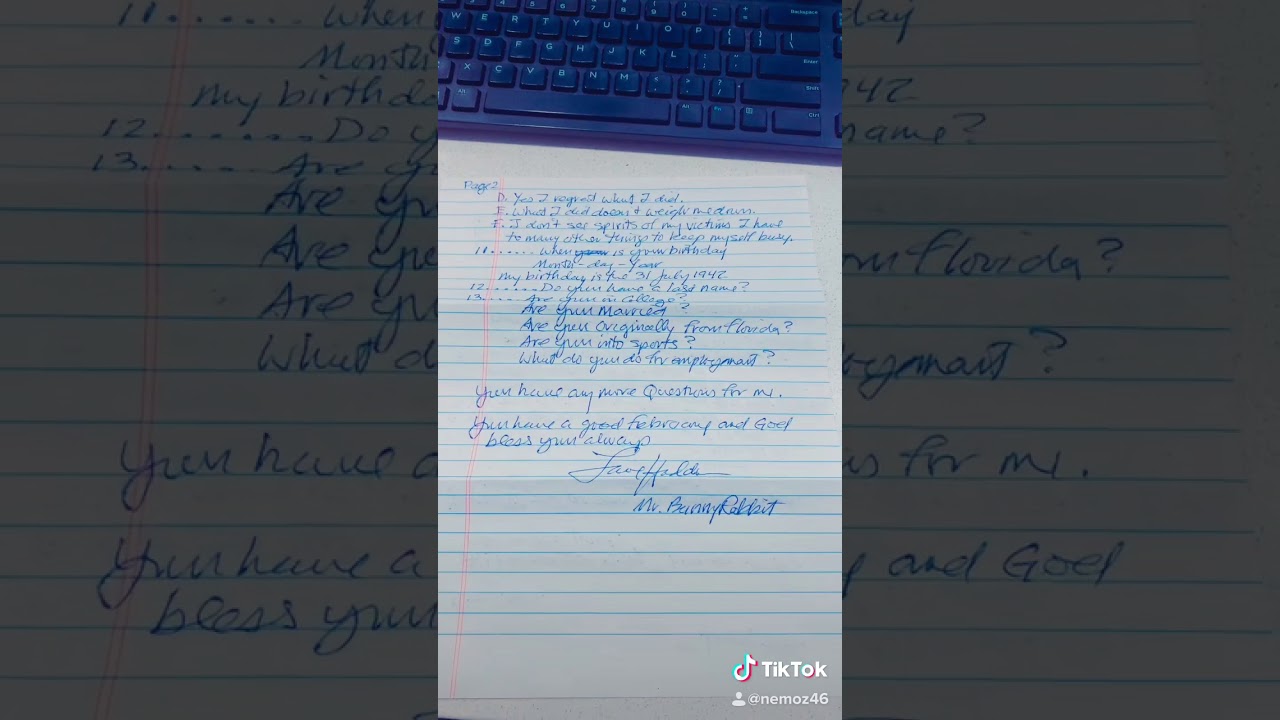 Page 2
D. Yes I regret what I did.
E. What I did doesn't weigh me down.
F. I don't see spirits of my victims I have
to many other things to keep myself busy.
11...... When is your birthday
Month-day-Year
My birthday is the 31 July 1942
12...... Do you have a last name?
13..... Are you in College?
Are you Married?
Are you Originally from Florida?
Are you into sports?
What do you do for employment?
You have any more Questions for me.
You have a good February and God
bless you always
Mr. Bunny Rabbit
TikTok
@nemoz46